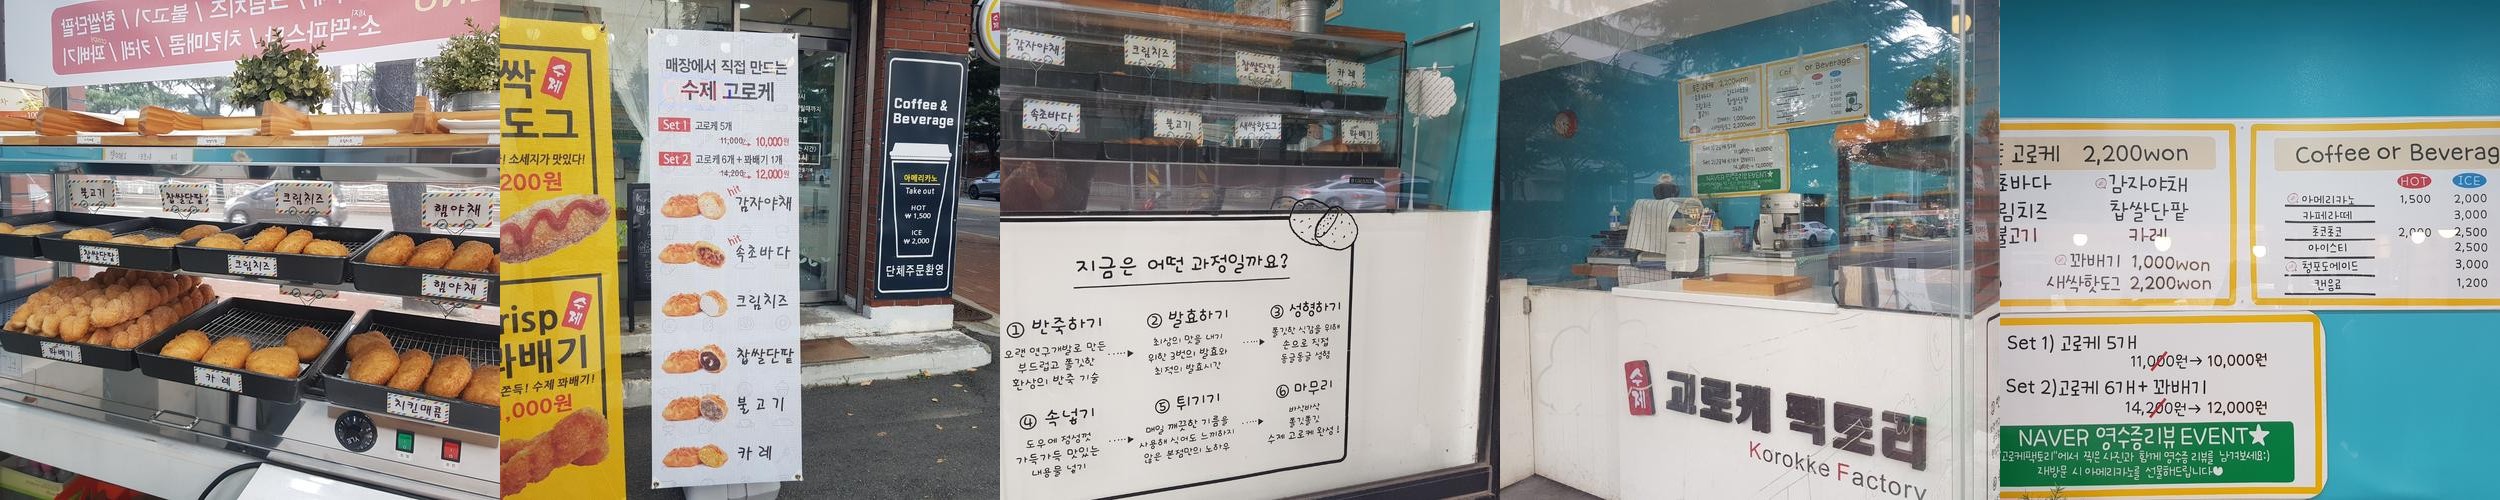 소·떡파스타 / 치킨매콤 / 카레 / 꽈배기
불고기
찹쌀단팥
크림치즈
햄야채
찹쌀단팥
크림치즈
햄야채
꽈배기
카레
치킨매콤
싹
수제
도그
소세지가 맛있다!
200원
risp
수제
꽈배기
쫀득! 수제 꽈배기!
,000원
매장에서 직접 만드는
수제 고로케
Set 1 고로케 5개
11,000원→ 10,000원
Set 2 고로케 6개 + 꽈배기 1개
14,200원→ 12,000원
hit
감자야채
hit
속초바다
크림치즈
찹쌀단팥
불고기
카레
Coffee &
Beverage
아메리카노
Take out
HOT
₩ 1,500
ICE
₩ 2,000
단체주문환영
감자야채
크림치즈
찹쌀단팥
카레
속초바다
불고기
새싹핫도그
꽈배기
지금은 어떤 과정일까요?
① 반죽하기
오랜 연구개발로 만든
부드럽고 쫄깃한
환상의 반죽 기술
② 발효하기
최상의 맛을 내기
위한 3번의 발효와
최적의 발효시간
③ 성형하기
쫄깃한 식감을 위해
손으로 직접
동글동글 성형
④ 속넣기
도우에 정성껏
가득가득 맛있는
내용물 넣기
⑤ 튀기기
매일 깨끗한 기름을
사용해 식어도 느끼하지
않은 본점만의 노하우
⑥ 마무리
바삭바삭
쫄깃쫄깃
수제 고로케 완성!
2,200won
Cof or Beverage
NAVER 영수증리뷰 EVENT★
수제
고로케 팩토리
Korokke Factory
고로케 2,200won
초바다 감자야채
림치즈 찹쌀단팥
불고기 카레
꽈배기 1,000won
새싹핫도그 2,200won
Coffee or Beverag
HOT ICE
아메리카노 1,500 2,000
카페라떼 3,000
쵸코쵸코 2,000 2,500
아이스티 2,500
청포도에이드 3,000
캔음료 1,200
Set 1) 고로케 5개
11,000원→ 10,000원
Set 2) 고로케 6개+ 꽈배기
14,200원→ 12,000원
NAVER 영수증리뷰 EVENT★
"고로케팩토리"에서 찍은 사진과 함께 영수증 리뷰를 남겨보세요:)
재방문 시 아메리카노를 선물해드립니다♥